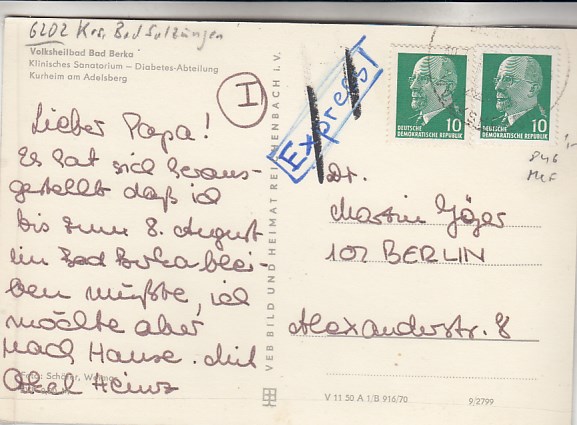 6202 Krs. Bad Salzungen
Volksheilbad Bad Berka
Klinisches Sanatorium – Diabetes-Abteilung
Kurheim am Adelsberg
I
Lieber Papa!
Es hat sich heraus-
gestellt daß ich
bis zum 8. August
in Bad Berka blei-
ben müßte, ich
möchte aber
nach Hause. Mit
Onkel Heinz
Foto: Schäfer, Weimar
VEB BILD UND HEIMAT REICHENBACH I. V.
Express!
DEUTSCHE DEMOKRATISCHE REPUBLIK 10
DEUTSCHE DEMOKRATISCHE REPUBLIK 10
846
MeF
1,-
Dr.
Martin Jäger
102 BERLIN
Alexanderstr. 8
V 11 50 A 1/B 916/70
9/2799